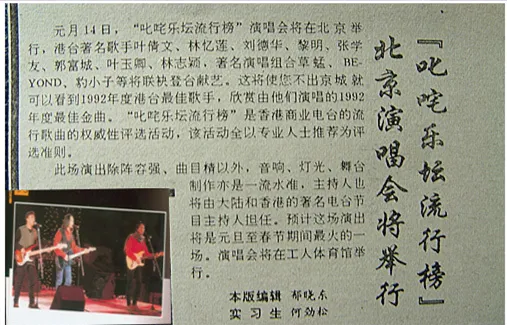 『叱咤乐坛流行榜』
北京演唱会将举行
元月14日,“叱咤乐坛流行榜”演唱会将在北京举
行,港台著名歌手叶倩文、林忆莲、刘德华、黎明、张学
友、郭富城、叶玉卿、林志颖,著名演唱组合草蜢、BE-
YOND、豹小子等将联袂登台献艺。这将使您不出京城就
可以看到1992年度港台最佳歌手,欣赏由他们演唱的1992
年度最佳金曲。“叱咤乐坛流行榜”是香港商业电台的流
行歌曲的权威性评选活动,该活动全以专业人士推荐为评
选准则。
此场演出除阵容强、曲目精以外,音响、灯光、舞台
制作亦是一流水准,主持人也
将由大陆和香港的著名电台节
目主持人担任。预计这场演出
将是元旦至春节期间最火的一
场。演唱会将在工人体育馆举
行。
本版编辑 郗晓东
实习生 何劲松